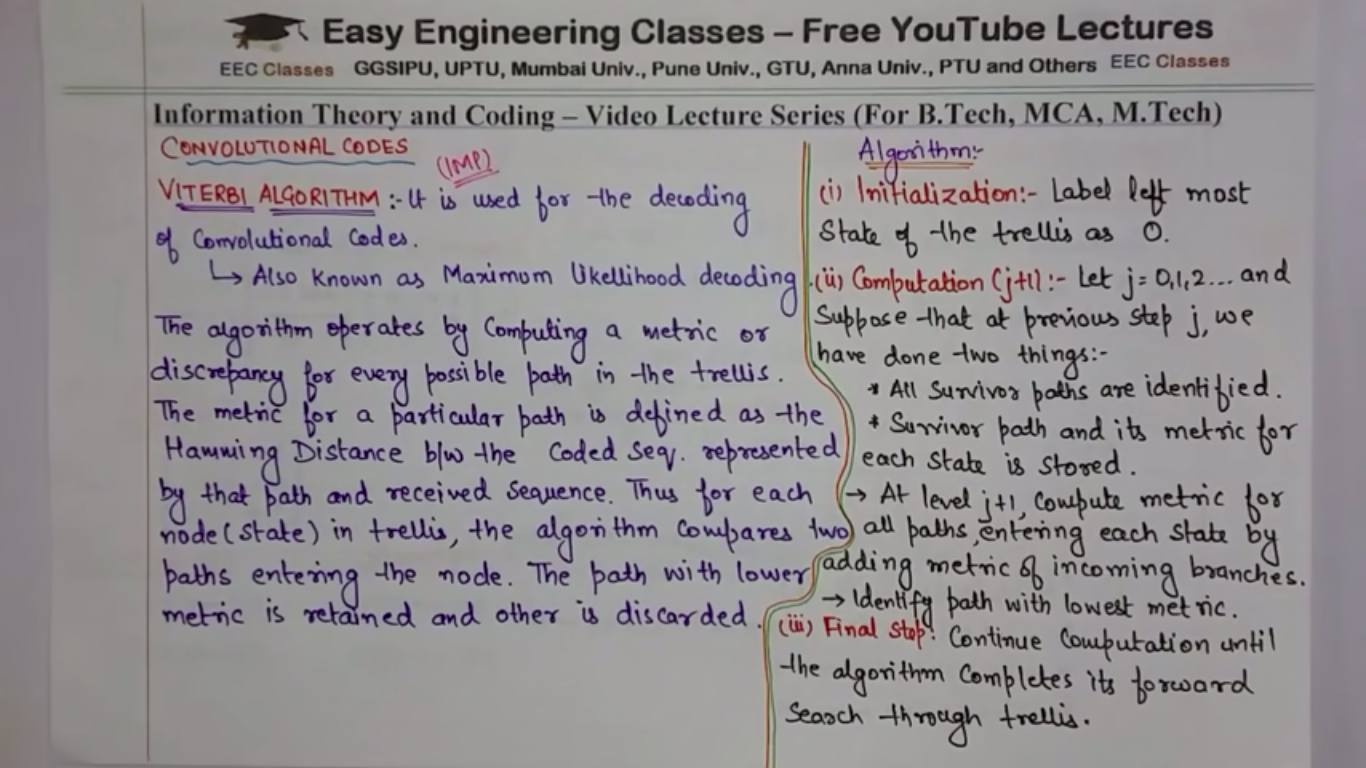 Easy Engineering Classes – Free YouTube Lectures
EEC Classes GGSIPU, UPTU, Mumbai Univ., Pune Univ., GTU, Anna Univ., PTU and Others EEC Classes
Information Theory and Coding – Video Lecture Series (For B.Tech, MCA, M.Tech)
CONVOLUTIONAL CODES
(IMP)
VITERBI ALGORITHM :- It is used for the decoding
of Convolutional Codes.
↳ Also known as Maximum likellihood decoding
The algorithm operates by Computing a metric or
discrepancy for every possible path in the trellis.
The metric for a particular path is defined as the
Hamming Distance b/w the Coded Seq. represented
by that path and received Sequence. Thus for each
node (state) in trellis, the algorithm Compares two
paths entering the node. The path with lower
metric is retained and other is discarded.
Algorithm:-
(i) Initialization:- Label left most
State of the trellis as 0.
(ii) Computation (j+1) :- Let j = 0,1,2... and
Suppose that at previous step j, we
have done two things:-
* All Survivor paths are identified.
* Survivor path and its metric for
each State is stored.
→ At level j+1, Compute metric for
all paths entering each state by
adding metric of incoming branches.
→ Identify path with lowest metric.
(iii) Final Step: Continue Computation until
the algorithm Completes its forward
Search through trellis.